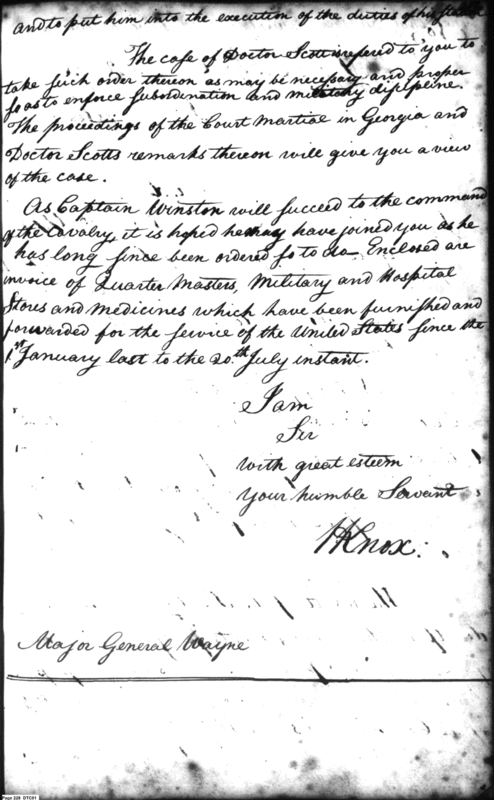 and to put him into the execution of the duties of his station
The case of Doctor Scott is refered to you to
take such order thereon as may be necessary and proper
so as to enforce subordination and military disipline.
The proceedings of the Court Martial in Georgia and
Doctor Scotts remarks thereon will give you a view
of the case.
As Captain Winston will succeed to the command
of the Cavalry, it is hoped he may have joined you as he
has long since been ordered so to do. Enclosed are
invoice of Quarter Masters, Military and Hospital
Stores and Medicines which have been furnished and
forwarded for the service of the United States since the
1st January last to the 20th July instant.
I am
Sir
with great esteem
Your humble Servant
HKnox.
Major General Wayne
Page 228 DTC01